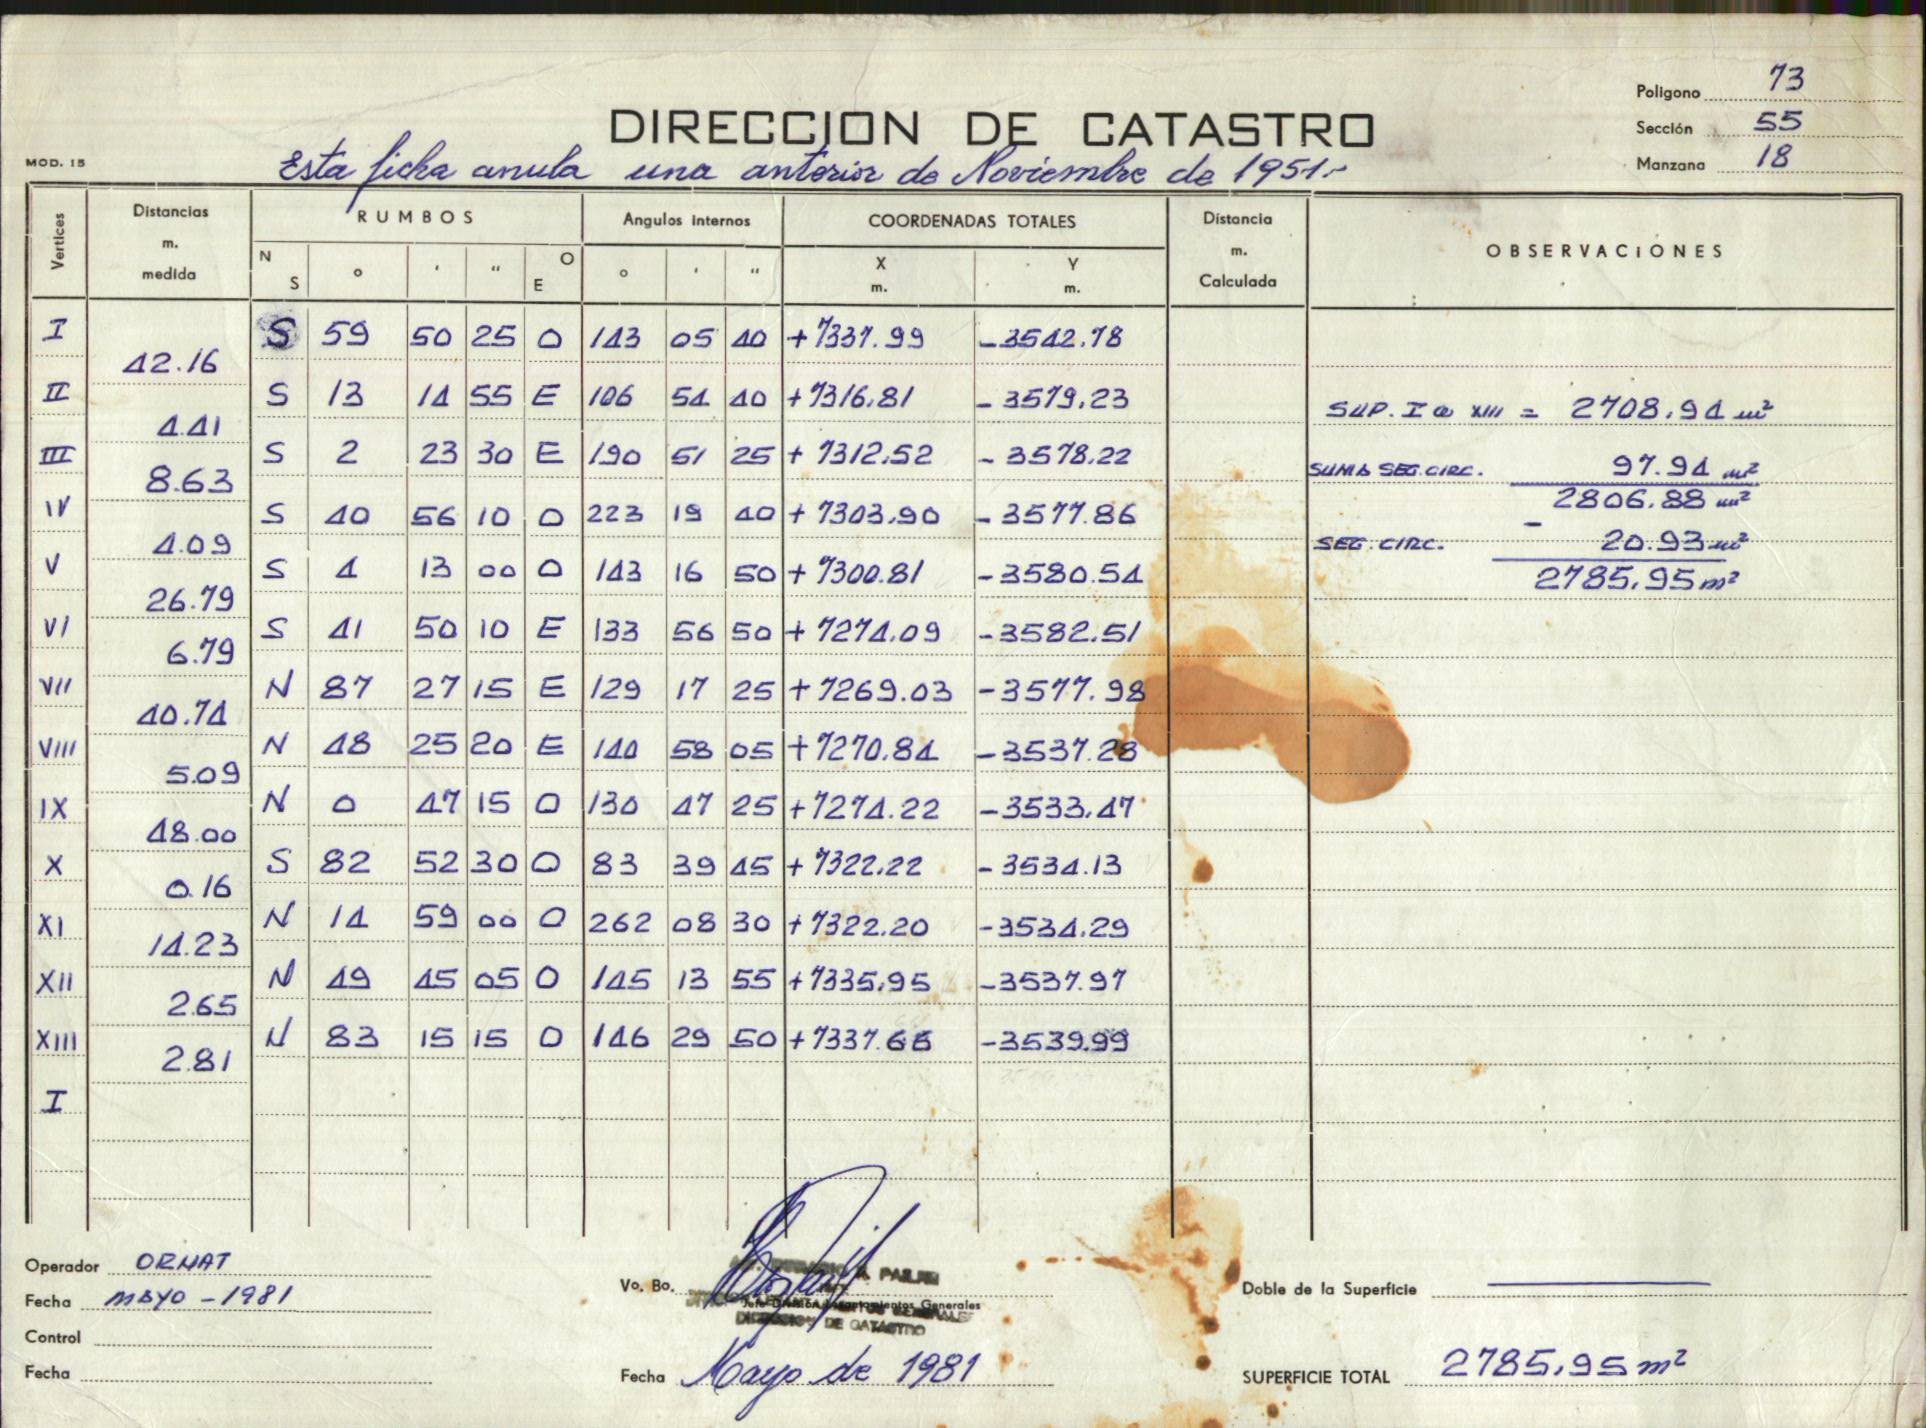 Poligono 73
DIRECCION DE CATASTRO
Sección 55
MOD. 15
Esta ficha anula una anterior de Noviembre de 1951.-
Manzana 18
Vertices
Distancias m. medida
RUMBOS
Angulos internos
COORDENADAS TOTALES
Distancia m. Calculada
OBSERVACIONES
N S ° ' " O E ° ' " X m. Y m.
I S 59 50 25 O 143 05 40 +7337.99 -3542.78
42.16
II S 13 14 55 E 106 54 40 +7316.81 -3579.23
SUP. I a XIII = 2708.94 m²
4.41
III S 2 23 30 E 190 51 25 +7312.52 -3578.22
SUMA SEG.CIRC. 97.94 m²
8.63
2806.88 m²
IV S 40 56 10 O 223 19 40 +7303.90 -3577.86
-
4.09
SEG. CIRC. 20.93 m²
V S 4 13 00 O 143 16 50 +7300.81 -3580.54
2785.95 m²
26.79
VI S 41 50 10 E 133 56 50 +7274.09 -3582.51
6.79
VII N 87 27 15 E 129 17 25 +7269.03 -3577.98
40.74
VIII N 48 25 20 E 140 58 05 +7270.84 -3537.28
5.09
IX N 0 47 15 O 130 47 25 +7274.22 -3533.47
48.00
X S 82 52 30 O 83 39 45 +7322.22 -3534.13
0.16
XI N 14 59 00 O 262 08 30 +7322.20 -3534.29
14.23
XII N 49 45 05 O 145 13 55 +7335.95 -3537.97
2.65
XIII N 83 15 15 O 146 29 50 +7337.66 -3539.99
2.81
I
Operador ORNAT
Vo. Bo.
Doble de la Superficie
Fecha MAYO - 1981
Jefe División Levantamientos Generales
DIRECCION DE CATASTRO
Control
Fecha
Fecha Mayo de 1981
SUPERFICIE TOTAL 2785.95 m²